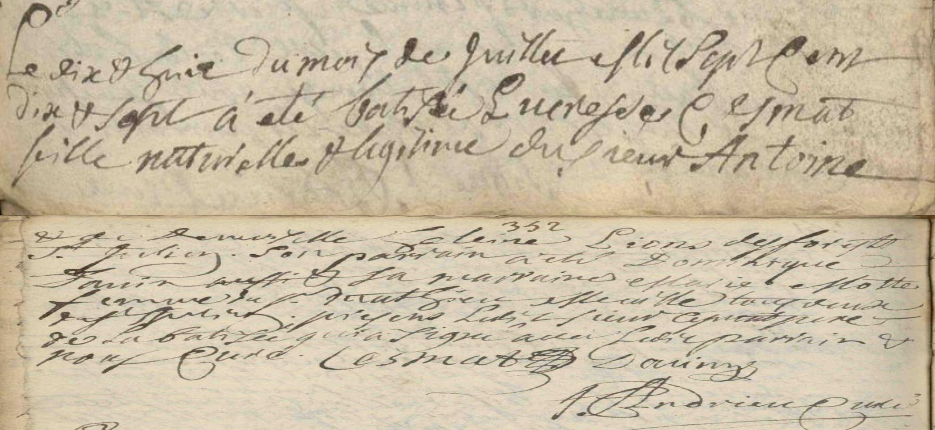 Le dix & huit du mois de Juillet Mil Sept Cent
dix & sept à été batisée Lucresse Cesmat
fille naturelle & legitime du sieur Antoine
352
& de demoiselle heleine Lions des forests
St Julien. Son parrain à été Dominique
Daurin aussi & la marraine Marie Motte
femme du Sr Mathieu tous deux
de St Julien. presens Ledit Sieur Cesmat pere
de La batisée qui a signé avec ledit parrain &
nous Curé. Cesmat Daurin
J. Andrieu Curé